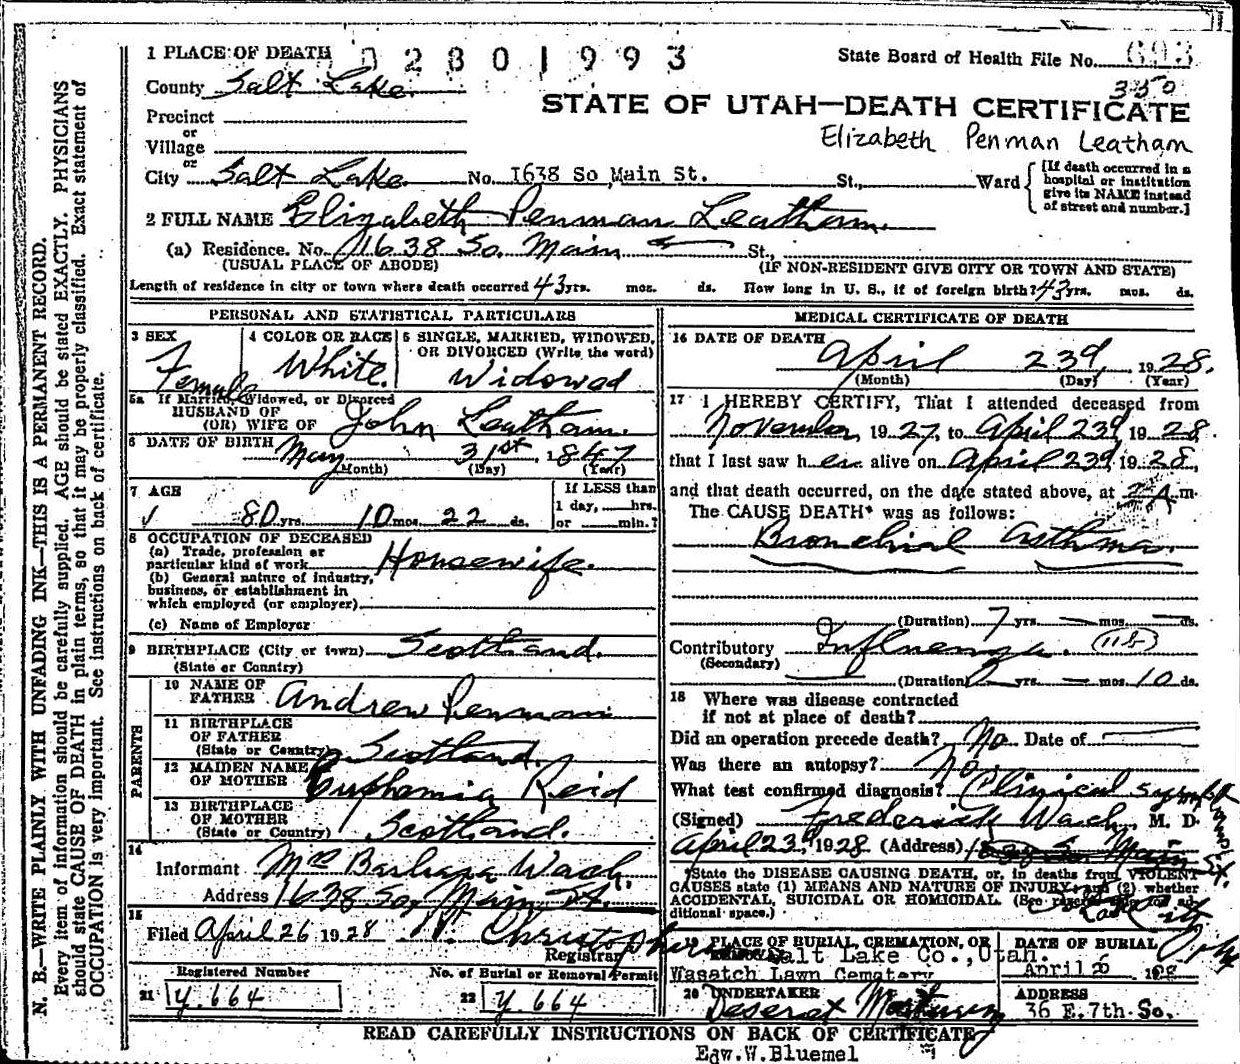 1 PLACE OF DEATH
02801993
State Board of Health File No. 693
350
County Salt Lake.
STATE OF UTAH—DEATH CERTIFICATE
Precinct
or
Village
Elizabeth Penman Leatham
or
City Salt Lake No. 1638 So Main St. St., Ward
[If death occurred in a
hospital or institution
give its NAME instead
of street and number.]
2 FULL NAME Elizabeth Penman Leatham.
(a) Residence. No. 1638 So. Main St.,
(USUAL PLACE OF ABODE) (IF NON-RESIDENT GIVE CITY OR TOWN AND STATE)
Length of residence in city or town where death occurred 43 yrs. mos. ds. How long in U. S., if of foreign birth? 43 yrs. mos. ds.
PERSONAL AND STATISTICAL PARTICULARS
3 SEX
Female
4 COLOR OR RACE
White.
5 SINGLE, MARRIED, WIDOWED,
OR DIVORCED (Write the word)
Widowed
5a If Married, Widowed, or Divorced
HUSBAND OF
(OR) WIFE OF John Leatham.
6 DATE OF BIRTH May 31st 1847
(Month) (Day) (Year)
7 AGE
80 yrs. 10 mos. 22 ds.
If LESS than
1 day, hrs.
or min.?
8 OCCUPATION OF DECEASED
(a) Trade, profession or
particular kind of work Housewife.
(b) General nature of industry,
business, or establishment in
which employed (or employer)
(c) Name of Employer
9 BIRTHPLACE (City or town) Scotland.
(State or Country)
PARENTS
10 NAME OF
FATHER Andrew Penman
11 BIRTHPLACE
OF FATHER
(State or Country) Scotland.
12 MAIDEN NAME
OF MOTHER Euphemia Reid
13 BIRTHPLACE
OF MOTHER
(State or Country) Scotland.
14
Informant Mrs Barbara Wach
Address 1638 So. Main St.
15
Filed April 26 1928 W. Christopherson
Registrar
Registered Number
21 Y.664
No. of Burial or Removal Permit
22 Y.664
MEDICAL CERTIFICATE OF DEATH
16 DATE OF DEATH
April 23d, 1928.
(Month) (Day) (Year)
17 I HEREBY CERTIFY, That I attended deceased from
November 1927, to April 23d, 1928.
that I last saw her alive on April 23d, 1928,
and that death occurred, on the date stated above, at 2 A.m.
The CAUSE DEATH* was as follows:
Bronchial asthma.
(Duration) 7 yrs. — mos. — ds.
Contributory Influenza. (118)
(Secondary)
(Duration) 0 yrs. — mos. 10 ds.
18 Where was disease contracted
if not at place of death?
Did an operation precede death? No. Date of
Was there an autopsy? No.
What test confirmed diagnosis? Clinical symptoms
(Signed) Frederick Wach, M. D.
April 23, 1928 (Address) 1638 So. Main St.
*State the DISEASE CAUSING DEATH, or, in deaths from VIOLENT
CAUSES state (1) MEANS AND NATURE OF INJURY; and (2) whether
ACCIDENTAL, SUICIDAL OR HOMICIDAL. (See reverse side for ad-
ditional space.)
Lake City
Utah
19 PLACE OF BURIAL, CREMATION, OR
REMOVAL Salt Lake Co., Utah.
Wasatch Lawn Cemetery
DATE OF BURIAL
April 26 1928
20 UNDERTAKER
Deseret Mortuary
ADDRESS
36 E. 7th So.
READ CAREFULLY INSTRUCTIONS ON BACK OF CERTIFICATE
Edw.W.Bluemel
N. B.—WRITE PLAINLY WITH UNFADING INK—THIS IS A PERMANENT RECORD.
Every item of information should be carefully supplied. AGE should be stated EXACTLY. PHYSICIANS
should state CAUSE OF DEATH in plain terms, so that it may be properly classified. Exact statement of
OCCUPATION is very important. See instructions on back of certificate.